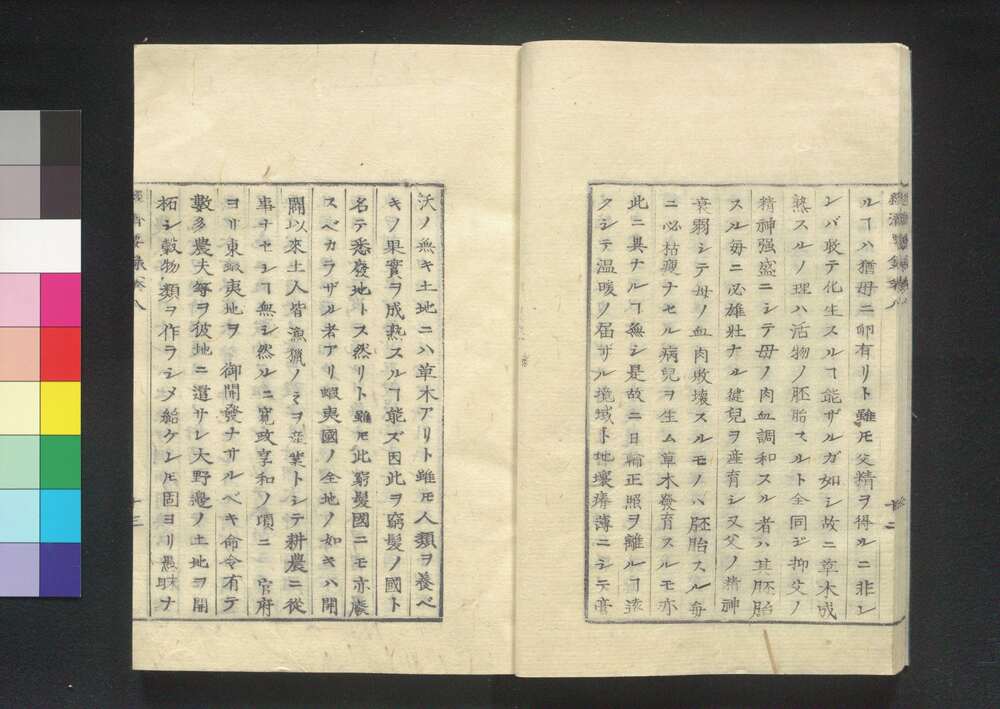 經濟要錄卷八
十二
ルヿハ猶母ニ卵有リト雖モ父精ヲ得ルニ非レ
レバ敢テ化生スルヿ能ザルガ如シ故ニ草木成
熟スルノ理ハ活物ノ胚胎スルト全同ジ抑父ノ
精神强盛ニシテ母ノ肉血調和スル者ハ其胚胎
スル每ニ必雄壯ナル健兒ヲ產育シ又父ノ精神
衰弱シテ母ノ血肉敗壞スルモノハ胚胎スル每
ニ必枯瘦ナセル病兒ヲ生ム草木發育スルモ亦
此ニ異ナルヿ無シ是故ニ日輪正照ヲ離ルヿ遠
クシテ溫暖ノ屆ザル境域ト地壤瘠薄ニシテ膏
沃ノ無キ土地ニハ草木アリト雖モ人類ヲ養ベ
キノ果實ヲ成熟スルヿ能ズ因此ヲ窮髮ノ國ト
名テ悉廢地トス然リト雖モ此窮髮國ニモ亦廢
スベカラザル者アリ蝦夷國ノ全地ノ如キハ開
闢以來土人皆漁獵ノミヲ產業トシテ耕農ニ從
事ナセシヿ無シ然ルニ寬政享和ノ頃ニ 官府
ヨリ東蝦夷地ヲ 御開發ナサルベキ命令有テ
數多農夫每ヲ彼地ニ遣サレ大野邊ノ土地ヲ開
柘シ穀物類ヲ作ラシメ給ケレモ固ヨリ愚昧ナ
經濟要錄卷八
十三